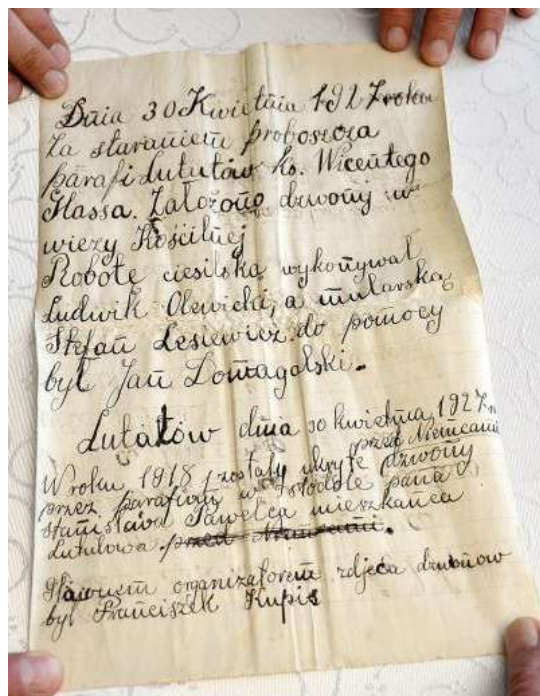 Dnia 30 Kwietnia 1927 roku
Za staraniem proboszcza
parafi Lututów ks. Wicentego
Hassa. Założono dzwony w
wieży Kościlnej
Robotę ciesilską wykonywał
Ludwik Olewicki, a mularską
Stefan Lesiewicz. do pomocy
był Jan Domagalski.
Lututów dnia 30 kwietnia 1927 r.
przed Niemcami
W roku 1918 zostały ukryte dzwony
przez parafian w stodole pana
Stanisława Pawelca mieszkańca
Lututowa. przed Niemcami.
Głównem organizatorem zdjęcia dzwonow
był Franciszek Kupis